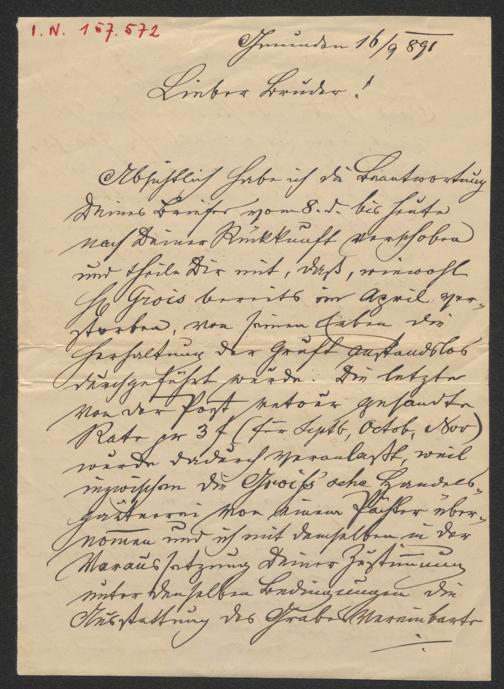 I.N. 157.572
Gmunden 16/9 891
Lieber Bruder!
Absichtlich habe ich die Beantwortung
Deines Briefes vom 8. d. bis heute
nach Deiner Rückkunft verschoben
und theile Dir mit, daß, wiewohl
H. Grois bereits im April ver-
storben, von seinen Erben die
Herhaltung der Gruft anstandslos
durchgeführt wurde. Die letzte
von der Post retour gesandte
Rate pr 3 f (für Septb, Octob, Nov)
wurde dadurch veranlaßt, weil
inzwischen die Groiß'sche Handels-
gärtnerei von einem Pächter über-
nomen und ich mit demselben in der
Voraussetzung Deiner Zustimmung
unter denselben Bedingungen die
Ausstattung des Grabes vereinbarte